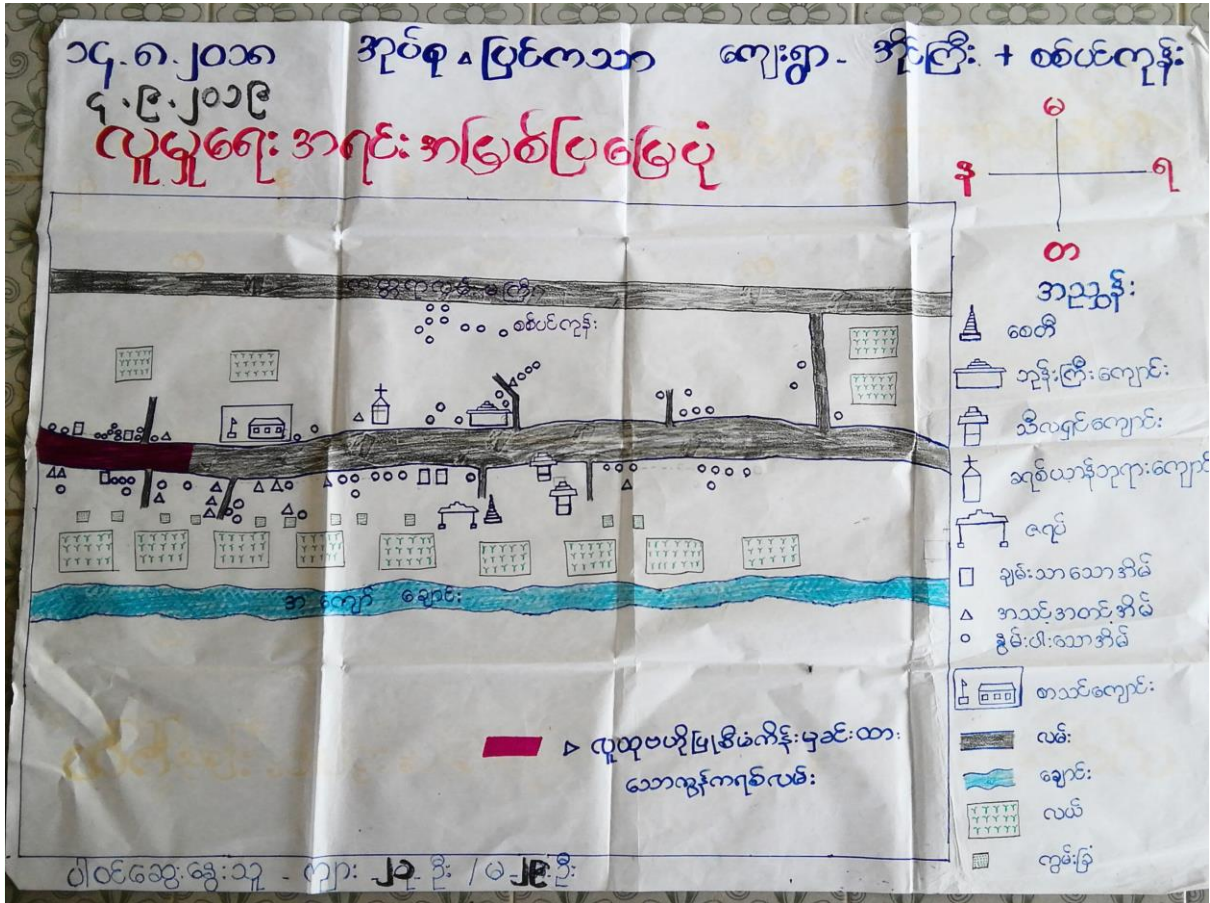 ၁၄.၈.၂၀၁၈ အုပ်စု - ပြင်ကသာ ကျေးရွာ - အိုင်ကြီး + စစ်ပင်ကုန်း
၄.၉.၂၀၁၉
လူမှုရေးအရင်းအမြစ်ပြမြေပုံ
မ
န ရ
တ
အညွှန်း
စေတီ
ဘုန်းကြီးကျောင်း
သီလရှင်ကျောင်း
ခရစ်ယာန်ဘုရားကျောင်း
ဇရပ်
ချမ်းသာသောအိမ်
အသင့်အတင့်အိမ်
နွမ်းပါးသောအိမ်
စာသင်ကျောင်း
လမ်း
ချောင်း
လယ်
ကွမ်းခြံ
စစ်ပင်ကုန်း
ချောင်း
လူထုဗဟိုပြုစီမံကိန်းမှခင်းထား
သောကွန်ကရစ်လမ်း
ပါဝင်ဆွေးနွေးသူ - ကျား ဦး / မ ၂၉ ဦး